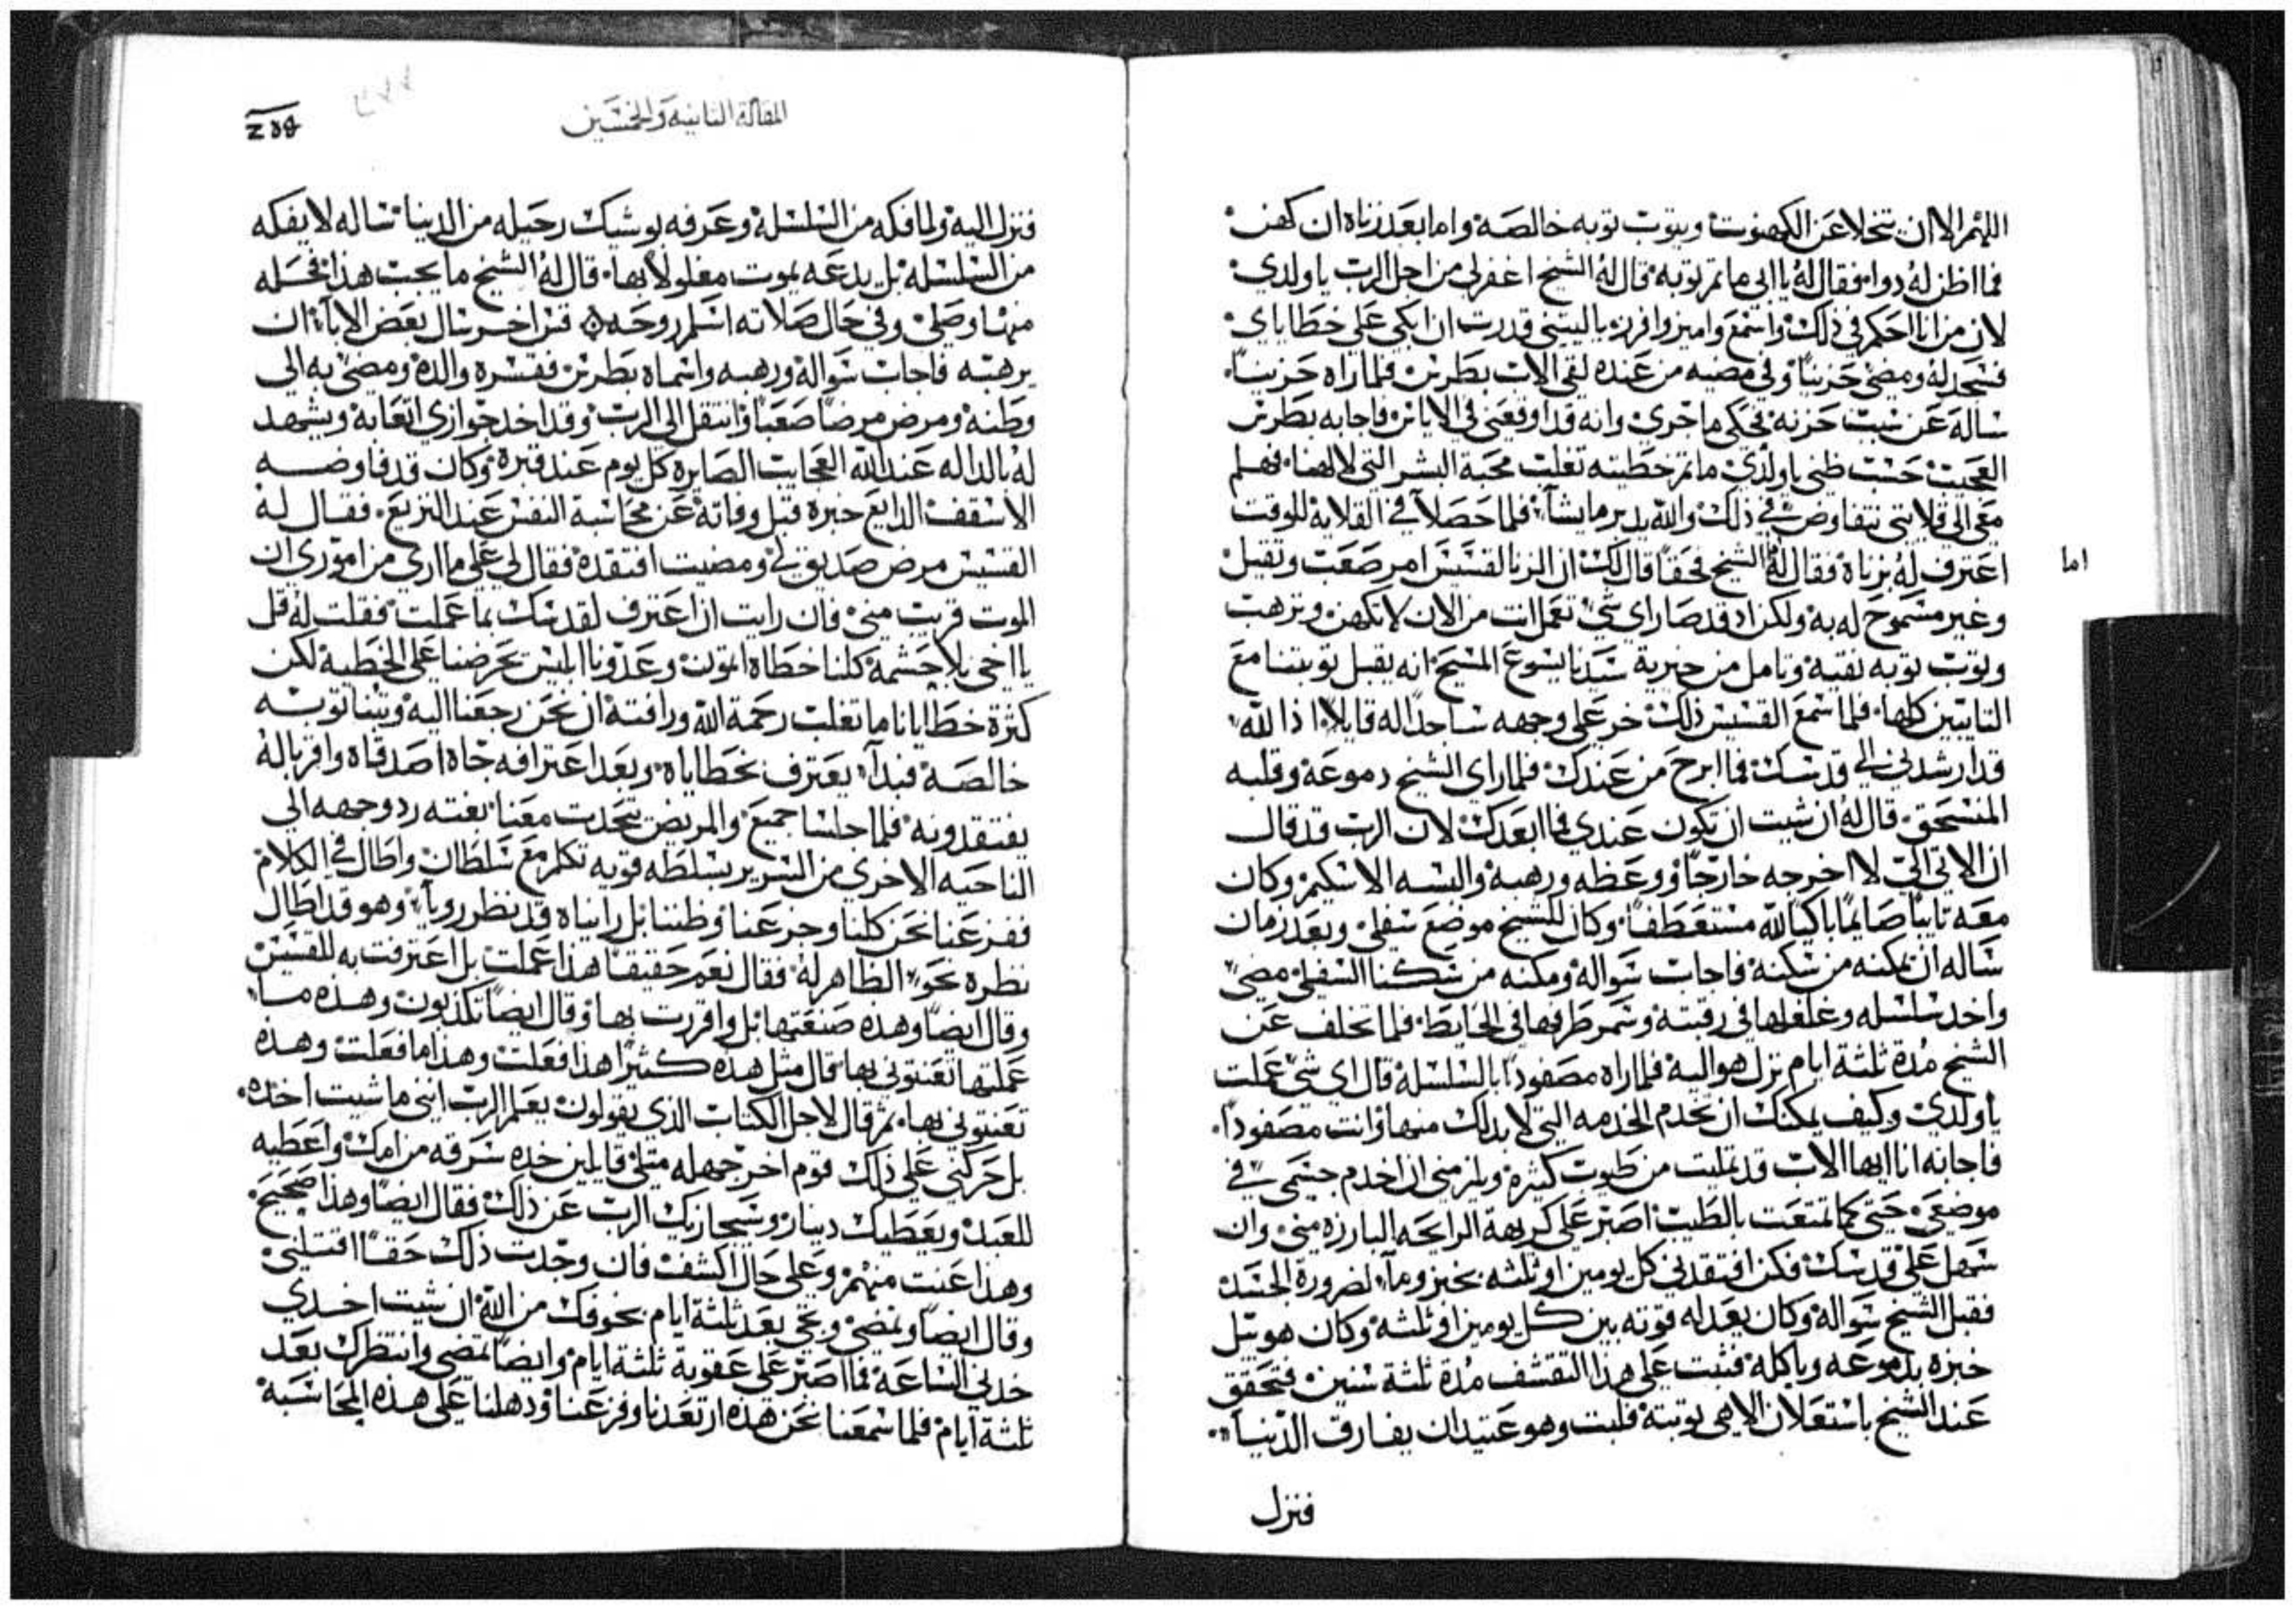 اللهم الا ان يتخلا عن الكهنوت ويتوب توبه خالصه واما بعد زناه ان كهن
فما اظن له دوا فقال له يا ابي ما ثم توبه قال له الشيخ اغفر لي من اجل الرب يا ولدي
لان من انا احكم في ذلك واسمع واميز وافرز ياليتني قدرت ان ابكي على خطاياي
فسجد له ومضى حزيناً وفي مضيه من عنده لقي الاب بطرس فلما راه حزيناً
ساله عن سبب حزنه فحكى ما جرى وانه قد اوقعني في الاياس فاجابه بطرس
العجيب حسب ظني يا ولدي ما ثم خطيته تغلب محبة البشر التي لالهنا فهلم
معي الى قلايتي نتفاوض في ذلك والله يدبر ما يشآ فلما حصلا في القلايه للوقت
اعترف له بزناه فقال له الشيخ فحقاً قال لك ان الزنا لقسيس امر صعب وثقيل
اما
وغير مسموح له به ولكن اذ قد صار اي شي تعمل انت من الان لا تكهن وترهب
وتوب توبه نقيه وتامل من خيرية سيدنا يسوع المسيح انه يقبل توبتنا مع
التايبين كلها فلما سمع القسيس ذلك خر على وجهه ساجداً له قايلاً اذا الله
قد ارشدني الى قدسك فما ابرح من عندك فلما راى الشيخ دموعه وقلبه
المنسحق قال له ان شيت ان تكون عندي فما ابعدك لان الرب قد قال
ان الاتي الي لا اخرجه خارجاً ووعظه ورهبه والبسه الاسكيم وكان
معه تايباً صايماً باكياً لله مستعطفاً وكان للشيخ موضع سفلي وبعد زمان
ساله ان يمكنه من سكنه فاجاب سواله ومكنه من سكنا السفلي مضى
واخد سلسله وغلغلها في رقبته وسمر طرفها في الحايط فلما تخلف عن
الشيخ مدة ثلثة ايام نزل هو اليه فلما راه مصفوداً بالسلسلة قال اي شي عملت
يا ولدي وكيف يمكنك ان تخدم الخدمه التي لا بد لك منها وانت مصفوداً
فاجابه انا ايها الاب قد تمليت من طيوب كثيرة ويلزمني ان اخدم جسمي في
موضعي حتى كما تمتعت بالطيب اصبر على كريهة الرايحه البارزه مني وان
سهل على قدسك فكن افتقدني كل يومين او ثلثه بخبز ومآ لضرورة الجسد
فقبل الشيخ سواله وكان يعد له قوته بين كل يومين او ثلثه وكان هو يبل
خبزه بدموعه وياكله فثبت على هذا التقشف مدة ثلثة سنين فتحقق
عند الشيخ باستعلان الاهي توبته قلبت وهو عتيد ان يفارق الدنيا
فنزل
المقالة الثانيه والخمسين
فنزل اليه ولما فكه من السلسلة وعرفه بوشيك رحيله من الدنيا ساله لا يفكه
من السلسله بل يدعه يموت مغلولاً بها قال له الشيخ ما يجب هذا فحله
منها وصلى وفي حال صلاته اسلم روحه قس اخر سال بعض الابآ ان
يرهبه فاجاب سواله ورهبه واسماه بطرس فقسره والده ومضى به الى
وطنه ومرض مرضاً صعباً وانتقل الى الرب وقد اخد جوازي اتعابه ويشهد
له بالداله عند الله العجايب الصايره كل يوم عند قبره وكان قد فاوضه
الاسقف الدايع خبره قبل وفاته عن محاسبة النفس عند النزيع فقال له
القسيس مرض صديق لي ومضيت افتقده فقال لي على ما ارى من اموري ان
الموت قريب مني فان رايت ان اعترف لقدسك بما عملت فقلت له قل
يا اخي بلا حشمه كلنا خطاه اتون وعدونا ابليس يحرضنا على الخطيه لكن
كثرة خطايانا ما تغلب رحمة الله ورافته ان نحن رجعنا اليه وتبنا توبه
خالصه فبدآ يعترف بخطاياه وبعد اعترافه جاه اصدقاه واقرباله
يفتقدونه فلما جلسنا جميع والمريض يتحدث معنا بغته رد وجهه الى
الناحيه الاخرى من السرير بسلطه قويه تكلم مع سلطان واطال في الكلام
ففزعنا نحن كلنا وجزعنا وظننا بل رايناه قد نظر رويآ وهو قد اطال
نظره نحو الظاهر له فقال نعم حقيقا هذا عملت بل اعترفت به للقسيس
وقال ايضاً وهذه صنعتها بل واقررت بها وقال ايضاً تكذبون وهذه ما
عملتها تعنتوني بها قال مثل هذه كثيرا هذا فعلت وهذا ما فعلت وهذه
تعنتوني بها ثم قال لاجل الكتاب الذي يقولون يعلم الرب انني ما شيت اخذه
بل حركني على ذلك قوم اخر جهله مثلي قايلين خده سرقه من امك واعطيه
للعبد ويعطيك دينار وسيجازيك الرب عن ذلك فقال ايضاً وهذا صحيح
وهذا عنت منهم وعلى حال اكشف فان وجدت ذلك حقاً اقتلني
وقال ايضاً وتمضي وتجي بعد ثلثة ايام بخوفك من الله ان شيت اخدي
خدني الساعه فما اصبر على عقوبة ثلثة ايام وايضاً تمضي وانتظرك بعد
ثلثة ايام فلما سمعنا نحن هذه ارتعدنا وفزعنا ودهلنا على هذه المحاسبه